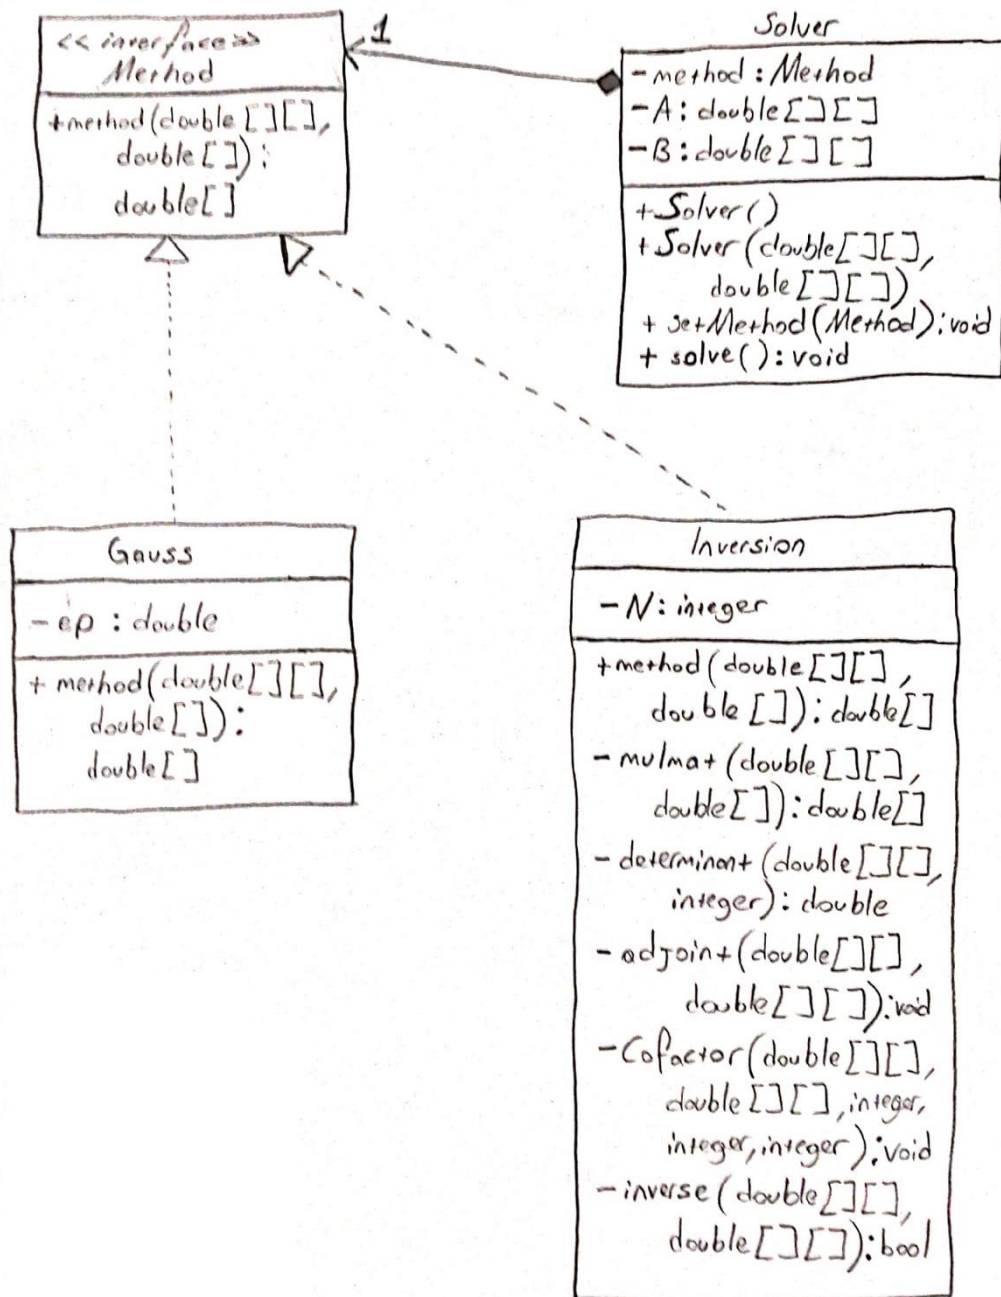 <<inverface>>
Method
+method(double[][],
double[]):
double[]
1
Solver
-method:Method
-A:double[][]
-B:double[][]
+Solver()
+Solver(double[][],
double[][])
+setMethod(Method):void
+solve():void
Gauss
-ep:double
+method(double[][],
double[]):
double[]
Inversion
-N:integer
+method(double[][],
double[]):double[]
-mulmat(double[][],
double[]):double[]
-determinant(double[][],
integer):double
-adjoint(double[][],
double[][]):void
-Cofactor(double[][],
double[][],integer,
integer,integer):void
-inverse(double[][],
double[][]):bool